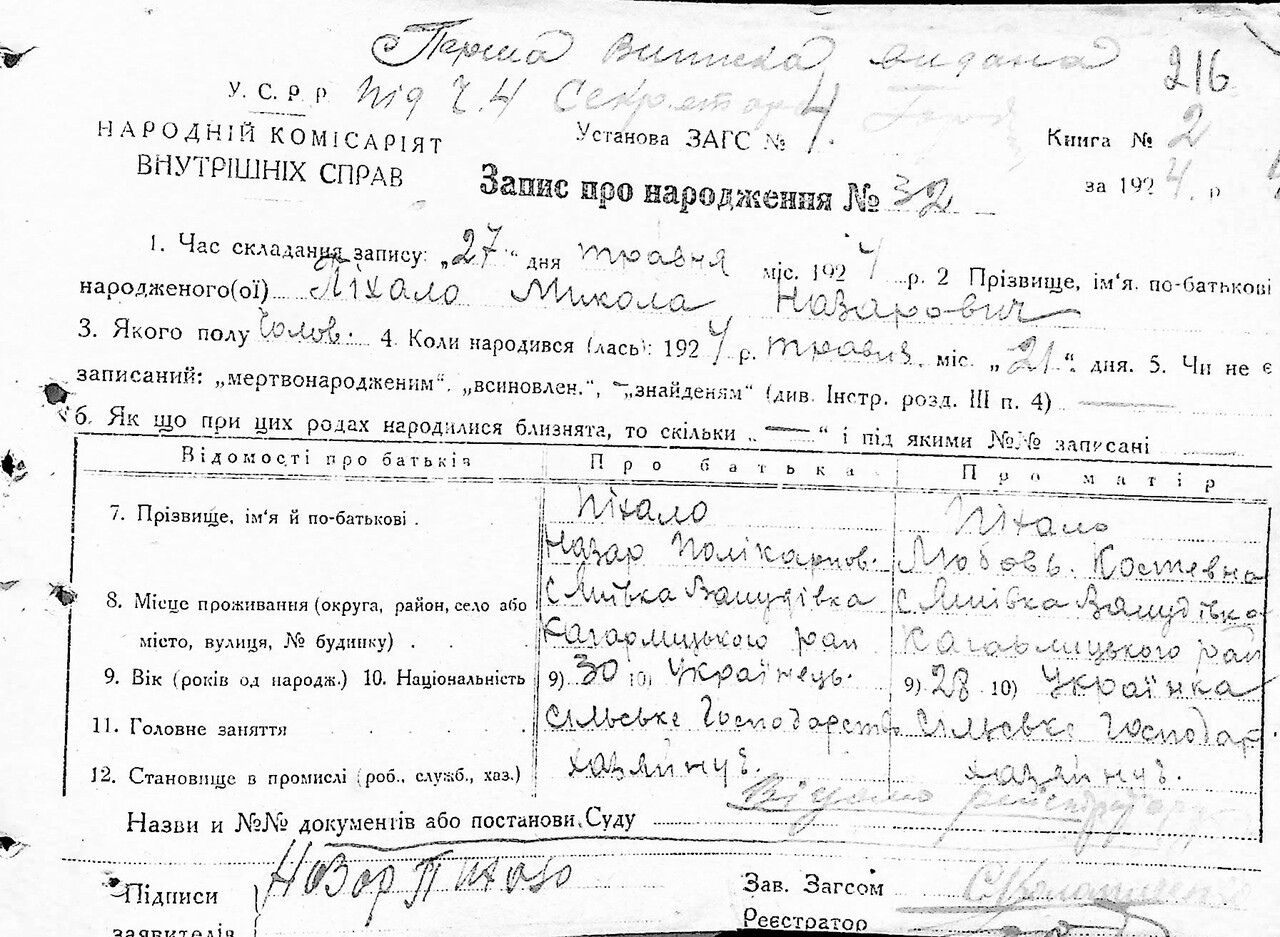 Перша Виписка видана
216
У. С. Р. Р. під Ч. 4 Секретар
НАРОДНІЙ КОМІСАРІЯТ
ВНУТРІШНІХ СПРАВ
Установа ЗАГС № 4.
Книга № 2
за 1924. р
Запис про народження № 32
1. Час складання запису: „27" дня травня міс. 1924 р. 2 Прізвище, ім'я, по-батькові
народженого(ої) Піхало Микола Назарович
3. Якого полу Чолов. 4. Коли народився (лась): 1924 р. травня міс. „21". дня. 5. Чи не є
записаний: „мертвонародженим", „всиновлен.", „знайденям" (див. Інстр. розд. III п. 4)
6. Як що при цих родах народилися близнята, то скільки „—" і під якими №№ записані
Відомості про батьків Про батька Про матір
7. Прізвище, ім'я й по-батькові . Піхало Піхало
Назар Полікарпов. Любовь. Костевна
8. Місце проживання (округа, район, село або с
місто, вулиця, № будинку) . . Кагарлицького рай Кагарлицького рай
9. Вік (років од народж.) 10. Національність 9) 30 10) Українець. 9) 28 10) Українка
11. Головне заняття . . . . Сільське Господарств Сільське Господар.
12. Становище в промислі (роб., служб., хаз.) хазяйнує. хазяйнує.
Відомо
Назви и №№ документів або постанови Суду
Підписи Назар Пихало Зав. Загсом
заявителів Реєстратор